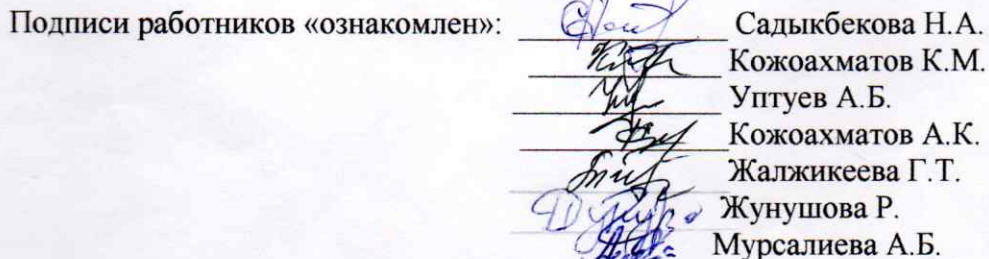 Подписи работников «ознакомлен»: Садыкбекова Н.А.
Кожоахматов К.М.
Уптуев А.Б.
Кожоахматов А.К.
Жалжикеева Г.Т.
Жунушова Р.
Мурсалиева А.Б.